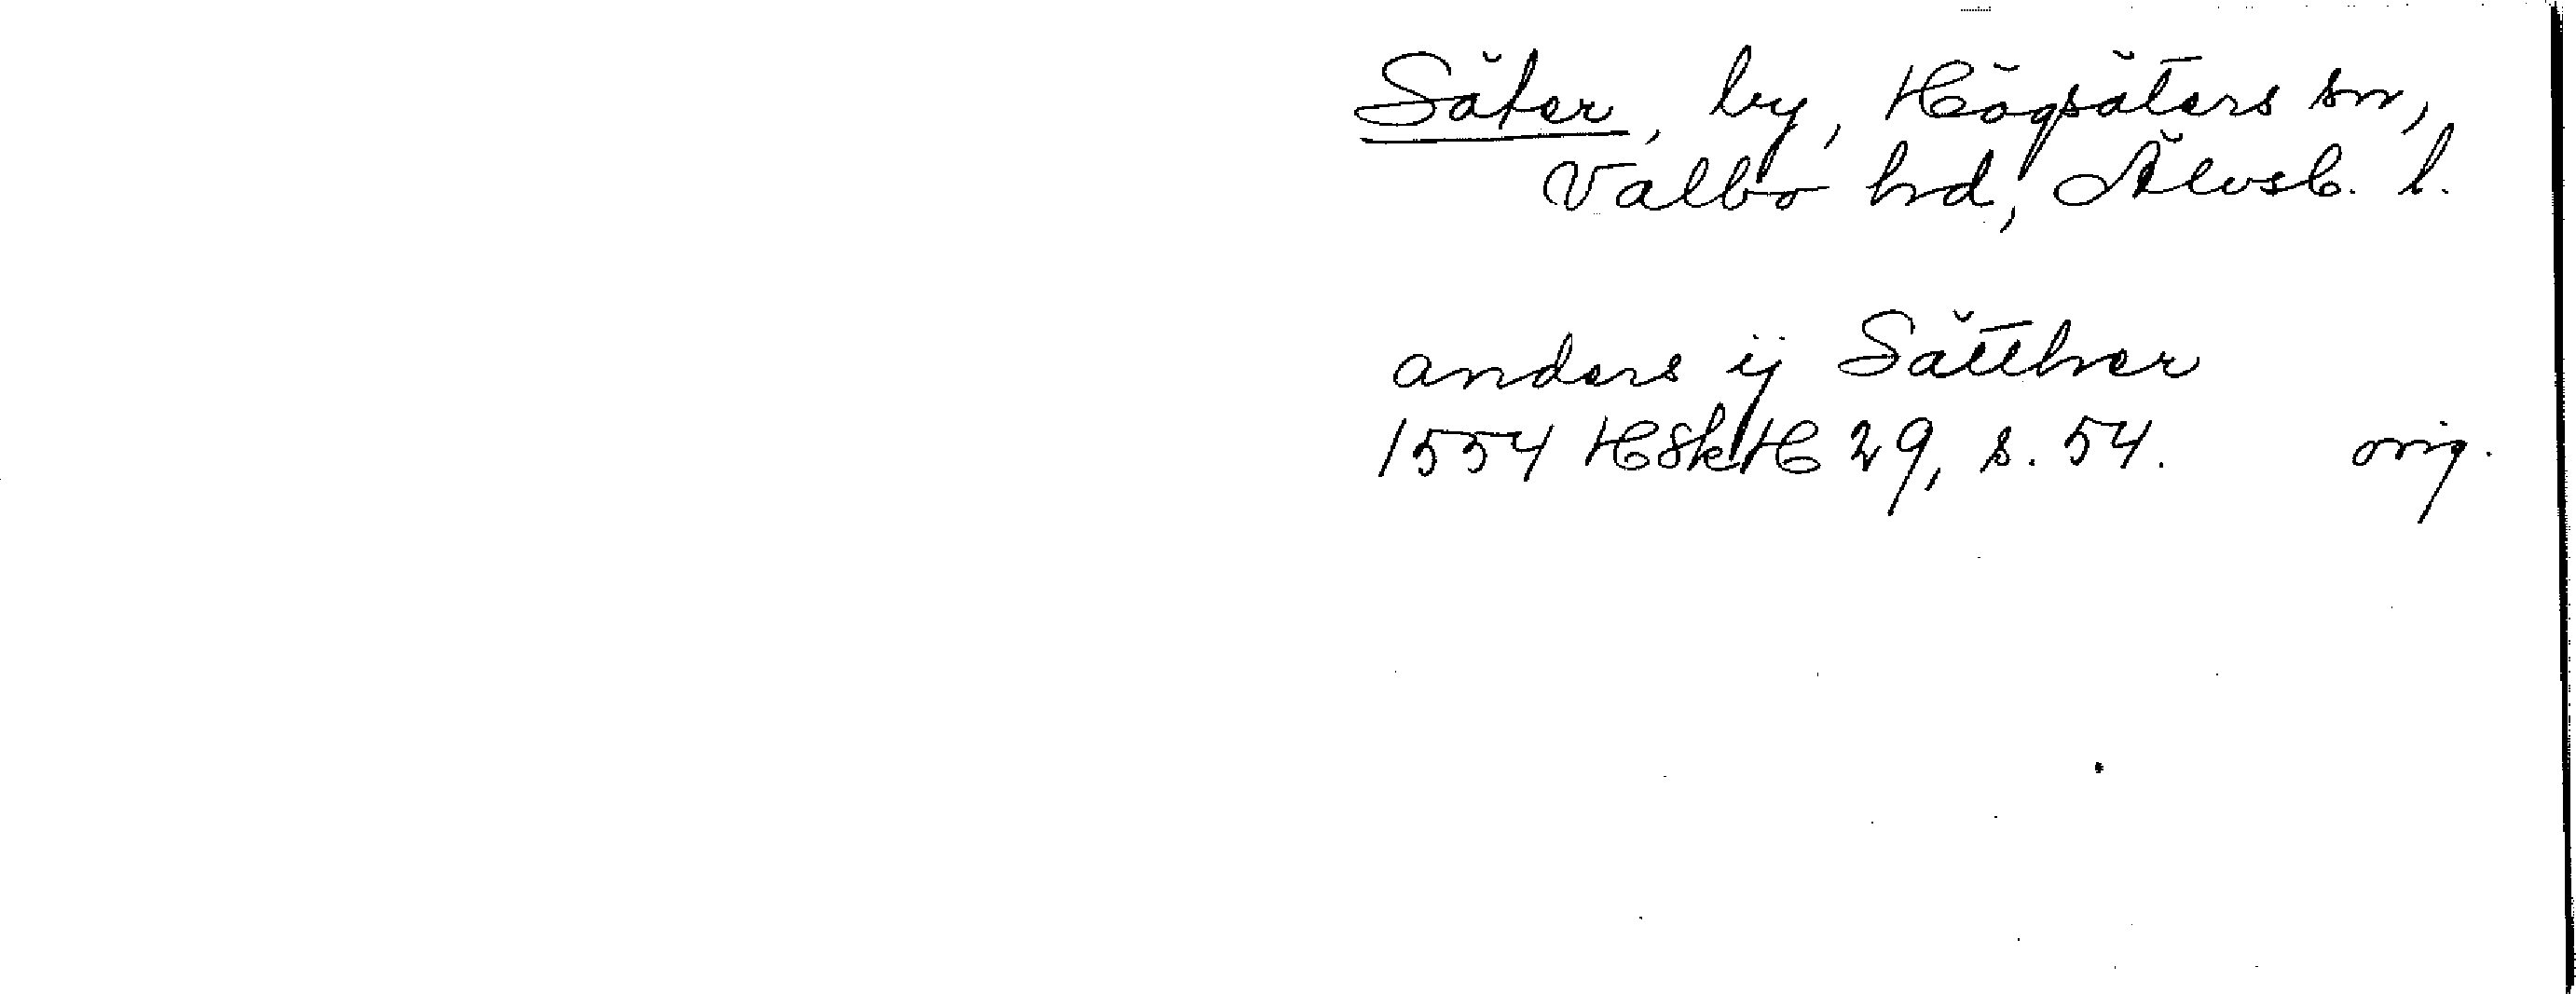 Säter, by, Högsäters sn,
Valbo hd, Älvsb. l.
anders ij Sätther
1554 HSkH 29, s. 54. orig.